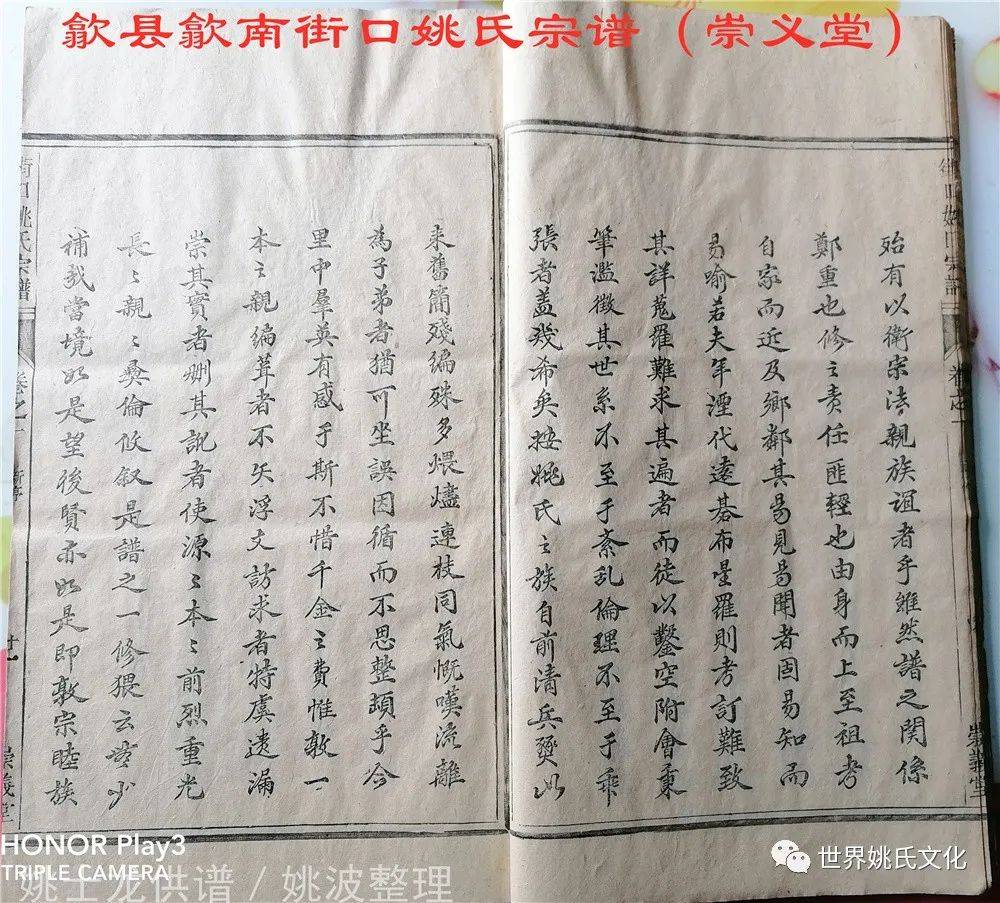 歙县歙南街口姚氏宗谱（崇义堂）
殆有以衛宗法親族誼者乎雖然譜之関係
鄭重也修之責任匪輕也由身而上至祖考
自家而近及鄉鄰其易見易聞者固易知而
易喻若夫年湮代遠碁布星羅則考訂難致
其詳蒐羅難求其遍者而徒以鑿空附會秉
筆濫徵其世系不至于紊乱倫理不至于乖
張者盖幾希矣按姚氏之族自前清兵燹以
崇義堂
来舊簡殘編殊多煨燼連枝同氣慨嘆流離
為子弟者猶可坐誤因循而不思整頓乎今
里中羣英有感于斯不惜千金之費惟敦一
本之親編葺者不矢浮文訪求者特虞遺漏
崇其實者刪其訛者使源〻本〻前烈重光
長〻親〻彝倫攸叙是譜之一修猥云無少
補哉當境如是望後賢亦如是即敦宗睦族
街口姚氏宗譜
卷之一
新序
廿一
崇義堂
HONOR Play3
TRIPLE CAMERA
姚土龙供谱 / 姚波整理
世界姚氏文化